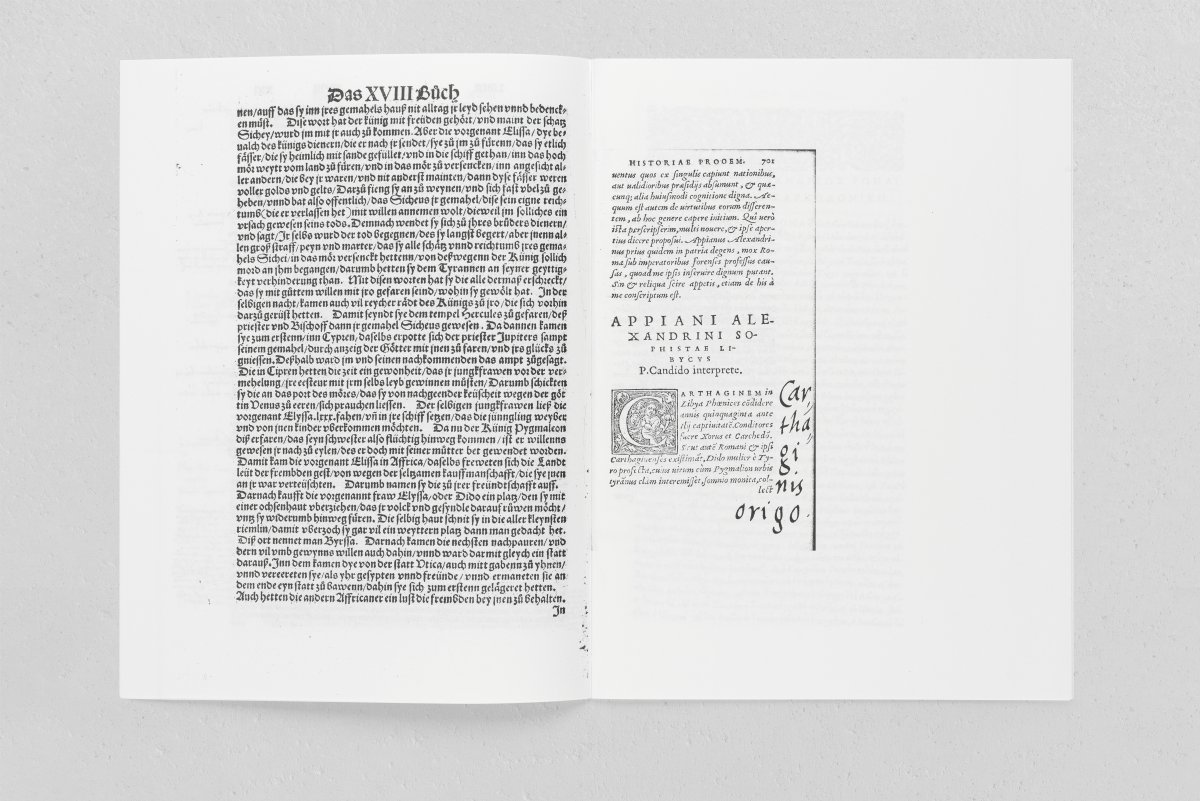 Das XVIII Bůch
nen/auff das sy inn jres gemahels hauß nit alltag jr leyd sehen vnnd bedenck-
en můst. Dise wort hat der künig mit freüden gehört/vnd maint der schatz
Sichey/wurd jm mit jr auch zů kommen. Aber die vorgenant Elissa/dye be-
ualch des künigs dienern/die er nach jr sendet/sye zů jm zů fürenn/das sy etlich
fässer/die sy heimlich mit sande gefüllet/vnd in die schiff gethan/inn das hoch
mör weyt vom land zů füren/vnd in das mör zů versencken/inn angesicht al-
ler andern/die bey jr waren/vnd nit anderst mainten/dann dyse fässer weren
voller golds vnd gelts/Darzů fieng sy an zů weynen/vnd sich fast vbel zů ge-
heben/vnnd bat also offentlich/das Sicheus jr gemahel/dise sein eigne reich-
tumb(die er verlassen het)mit willen annemen wolt/dieweil jm sölliches ein
vrsach gewesen seins tods. Demnach wendet sy sich zů jhres brůders dienern/
vnd sagt/Jr selbs wurd der tod begegnen/des sy langst begert/aber jnenn al-
len groß straff/peyn vnd marter/das sy alle schätz vnnd reichtumb jres gema-
hels Sichei/in das mör versenckt hettenn/von deßwegenn der Künig söllich
mord an jhm begangen/darumb hetten sy dem Tyrannen an seyner geyttig-
keyt verhinderung than. Mit disen worten hat sy die alle dermaß erschreckt/
das sy mit güttem willen mit jro gefaren seind/wohin sy gewölt hat. Jn der
selbigen nacht/kamen auch vil reycher rädt des Künigs zů jro/die sich vorhin
darzů gerüst hetten. Damit seyndt sye dem tempel Hercules zů gefaren/deß
priester vnd Bischoff dann jr gemahel Sicheus gewesen. Da dannen kamen
sye zum erstenn/inn Cypren/daselbs erpotte sich der priester Jupiters sampt
seinem gemahel/durch anzeig der Götter mit jnen zů faren/vnd jrs glücks zů
gniessen. Deßhalb ward jm vnd seinen nachkommenden das ampt zůgesagt.
Die in Cipren hetten die zeit ein gewonheit/das jr jungkfrawen vor der ver-
mehelung/jre eesteur mit jrm selbs leyb gewinnen müsten/Darumb schickten
sy die an das port des möres/das sy von nachgeender keüscheit wegen der göt
tin Venus zů eeren/sich prauchen liessen. Der selbigen jungkfrawen ließ die
vorgenant Elyssa.lxxx.fahen/vn̄ in jre schiff setzen/das die jüngling weyber
vnd von jnen kinder vberkommen möchten. Da nu der Künig Pygmaleon
diß erfaren/das seyn schwester also flüchtig hinweg kommen/ist er willenns
gewesen jr nach zů eylen/des er doch mit seiner mütter bet gewendet worden.
Damit kam die vorgenant Elissa in Affrica/daselbs freweten sich die Landt
leüt der frembden gest/von wegen der seltzamen kauffmanschafft/die sye jnen
an jr war verteüschten. Darumb namen sy die zů jrer freündtschafft auff.
Darnach kaufft die vorgenannt fraw Elyssa/oder Dido ein platz/den sy mit
einer ochsenhaut vberziehen/das jr volck vnd gesyndle darauf růwen möcht/
vntz sy widerumb hinweg füren. Die selbig haut schnit sy in die aller kleynsten
riemlin/damit vberzoch sy gar vil ein weyttern platz dann man gedacht het.
Diß ort nennet man Byrssa. Darnach kamen die nechsten nachpauren/vnd
dern vil vmb gewynns willen auch dahin/vnnd ward darmit gleych ein statt
darauß. Jnn dem kamen dye von der statt Vtica/auch mitt gabenn zů yhnen/
vnnd vereereten sye/als yhr gesypten vnnd freünde/vnnd ermaneten sie an
dem ende eyn statt zů bawenn/dahin sye sich zum erstenn gelägeret hetten.
Auch hetten die andern Affricaner ein lust die frembden bey jnen zů behalten.
Jn
HISTORIAE PROOEM. 701
uentus quos ex singulis capiunt nationibus,
aut ualidioribus præsidijs absumunt, & quæ-
cunq; alia huiusmodi cognitione digna. Ae-
quum est autem de uirtutibus eorum differen-
tem, ab hoc genere capere initium. Qui uerò
ista perscripserim, multi nouere, & ipse aper-
tius dicere proposui. Appianus Alexandri-
nus prius quidem in patria degens, mox Ro-
ma sub imperatoribus forenses professus cau-
sas, quoad me ipsis inseruire dignum putant.
Sin & reliqua scire appetis, etiam de his à
me conscriptum est.
APPIANI ALE-
XANDRINI SO-
PHISTAE LI-
BYCVS
P. Candido interprete.
CARTHAGINEM in
Libya Phœnices cōdidere
annis quinquaginta ante
Ilij captiuitatē. Conditores
fuere Xorus et Carchedō.
Sicut autē Romani & ipsi
Carthaginenses existimāt, Dido mulier è Ty-
ro profecta, cuius uirum cùm Pygmalion urbis
tyrānus clam interemisset, somnio monita, col-
lect
Car
tha
gi
nis
origo.